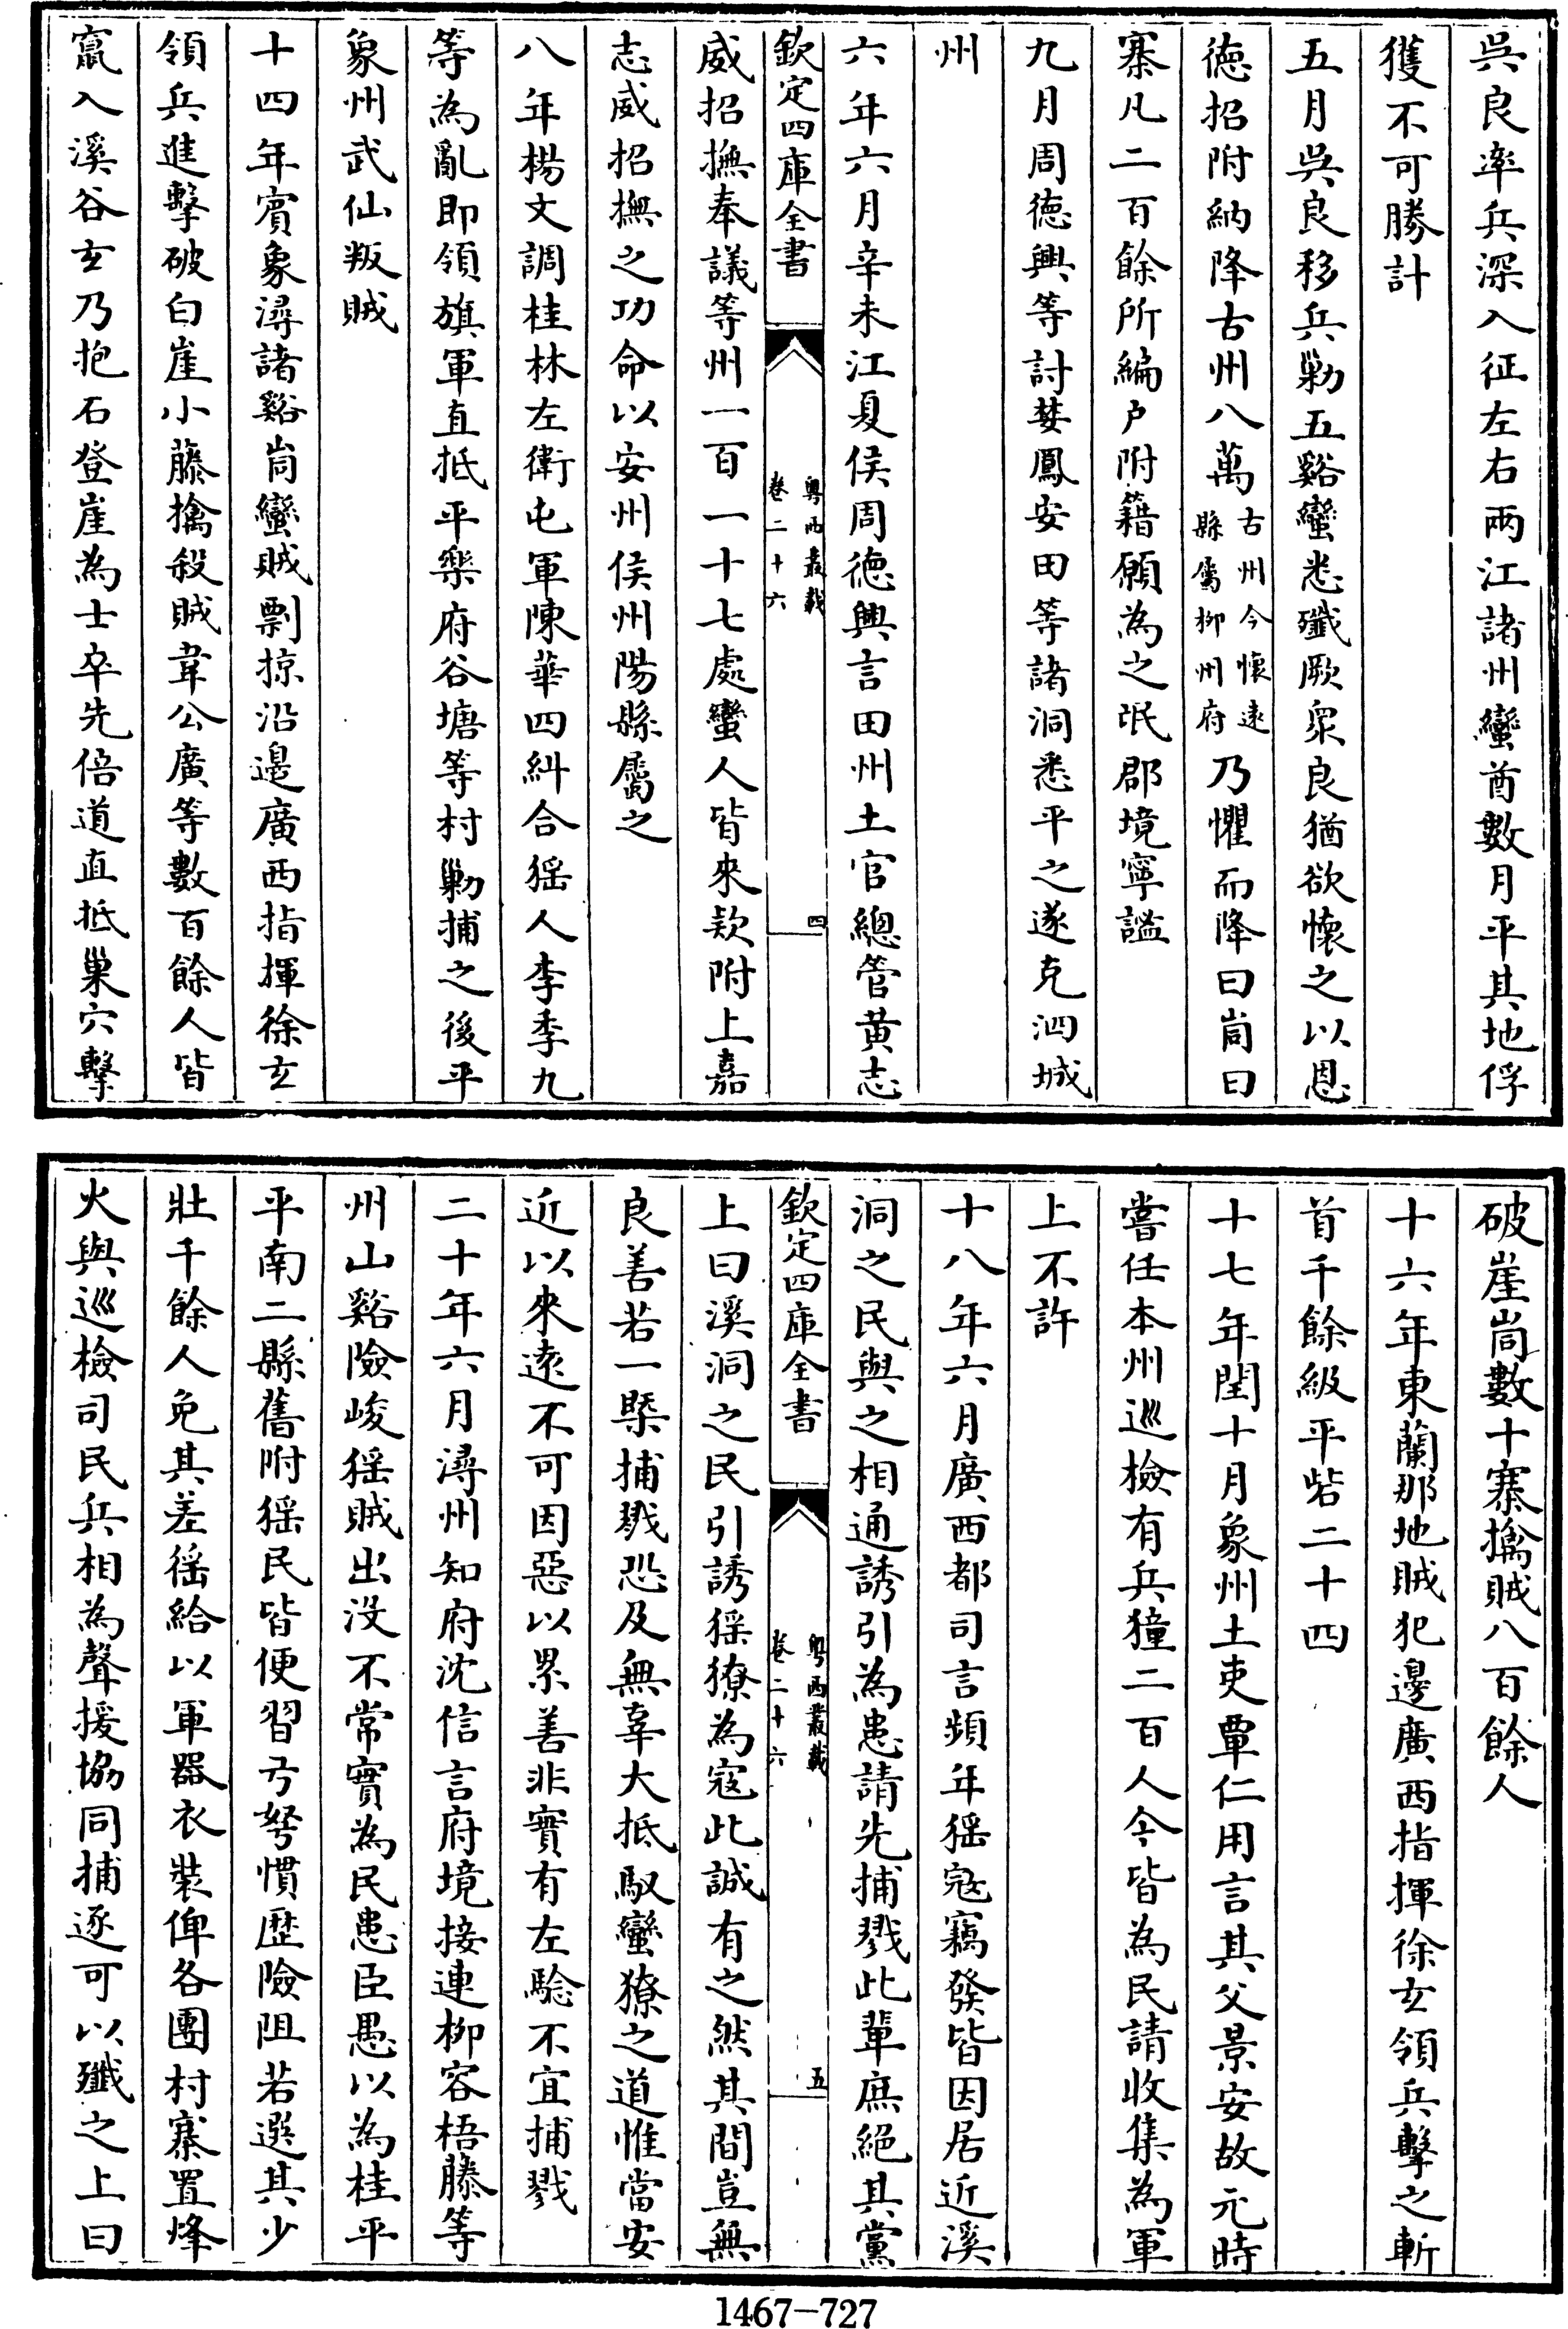 吳良率兵深入征左右兩江諸州蠻酋數月平其地俘
獲不可勝計
五月吳良移兵勦五谿蠻悉殲厥眾良猶欲懷之以恩
徳招附納降古州八萬古州今懷遠縣屬柳州府乃懼而降曰峝曰
寨凡二百餘所編戶附籍願為之氓郡境寧謐
九月周徳興等討婪鳳安田等諸洞悉平之遂克泗城
州
六年六月辛未江夏侯周徳興言田州土官總管黃志
欽定四庫全書
粵西叢載
卷二十六
四
威招撫奉議等州一百一十七處蠻人皆來欵附上嘉
志威招撫之功命以安州侯州陽縣屬之
八年楊文調桂林左衛屯軍陳華四糾合猺人李季九
等為亂即領旗軍直抵平樂府谷塘等村勦捕之後平
象州武仙叛賊
十四年賓象潯諸谿峝蠻賊剽掠沿邊廣西指揮徐玄
領兵進擊破白崖小藤擒殺賊韋公廣等數百餘人皆
竄入溪谷玄乃抱石登崖為士卒先倍道直抵巢穴擊
破崖峝數十寨擒賊八百餘人
十六年東蘭那地賊犯邊廣西指揮徐玄領兵擊之斬
首千餘級平砦二十四
十七年閏十月象州土吏覃仁用言其父景安故元時
嘗任本州巡檢有兵獞二百人今皆為民請收集為軍
上不許
十八年六月廣西都司言頻年猺寇竊發皆因居近溪
洞之民與之相通誘引為患請先捕戮此輩庶絕其黨
欽定四庫全書
粵西叢載
卷二十六
五
上曰溪洞之民引誘猺獠為寇此誠有之然其間豈無
良善若一槩捕戮恐及無辜大抵馭蠻獠之道惟當安
近以來遠不可因惡以累善非實有左驗不宜捕戮
二十年六月潯州知府沈信言府境接連柳容梧藤等
州山谿險峻猺賊出沒不常實為民患臣愚以為桂平
平南二縣舊附猺民皆便習弓弩慣歴險阻若選其少
壯千餘人免其差徭給以軍器衣裝俾各團村寨置烽
火與巡檢司民兵相為聲援協同捕逐可以殲之上曰
1467-727